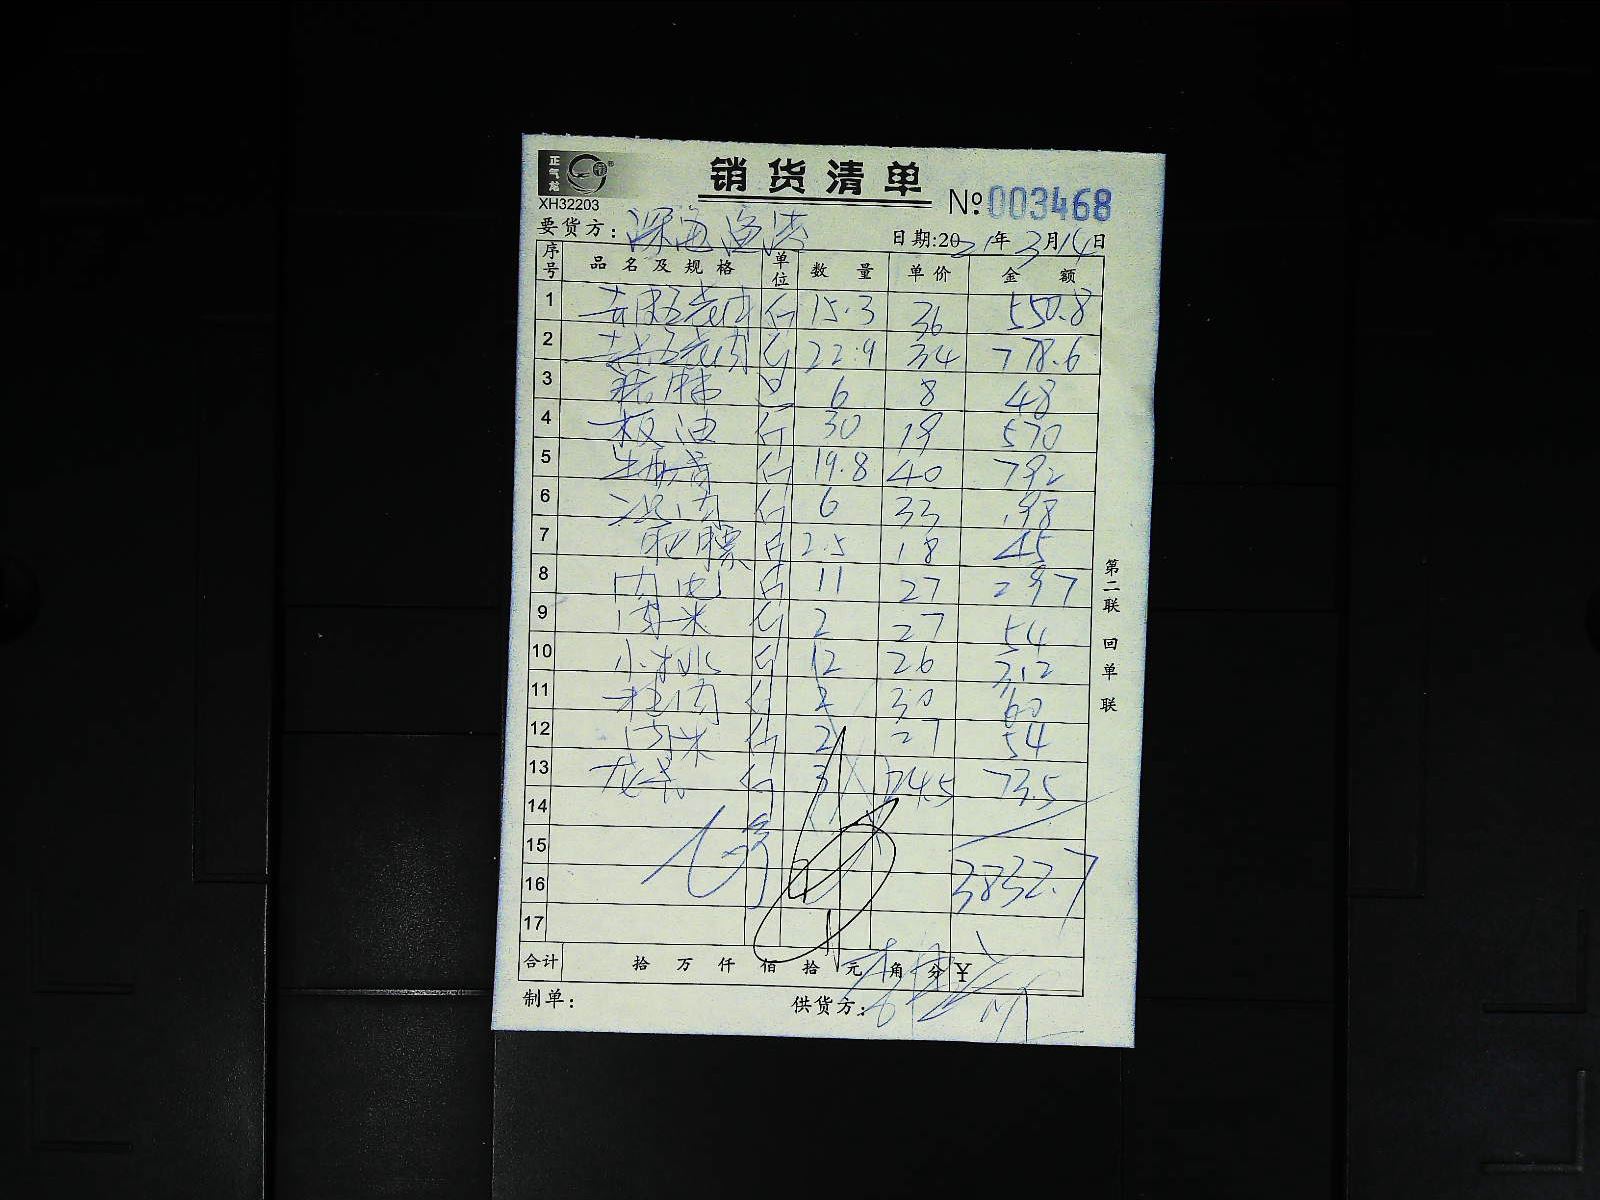 正气龙
XH32203
销货清单
№ 003468
要货方: 深海渔港
日期:2021年3月14日
序号 品名及规格 单位 数量 单价 金额
1 去皮五花肉 斤 15.3 36 550.8
2 五花肉 斤 22.9 34 778.6
3 6 8 48
4 板油 斤 30 19 570
5 斤 19.8 40 792
6 肉 斤 6 33 198
7 肥膘 斤 2.5 18 45
8 肉 斤 11 27 297
9 肉米 斤 2 27 54
10 小 斤 12 26 312
11 肉 斤 2 30 60
12 肉米 斤 2 27 54
13 龙骨 斤 3 24.5 73.5
14
15
16 3832.7
17
合计 拾 万 仟 佰 拾 元 角 分 ¥
制单:
供货方:
第二联 回单联